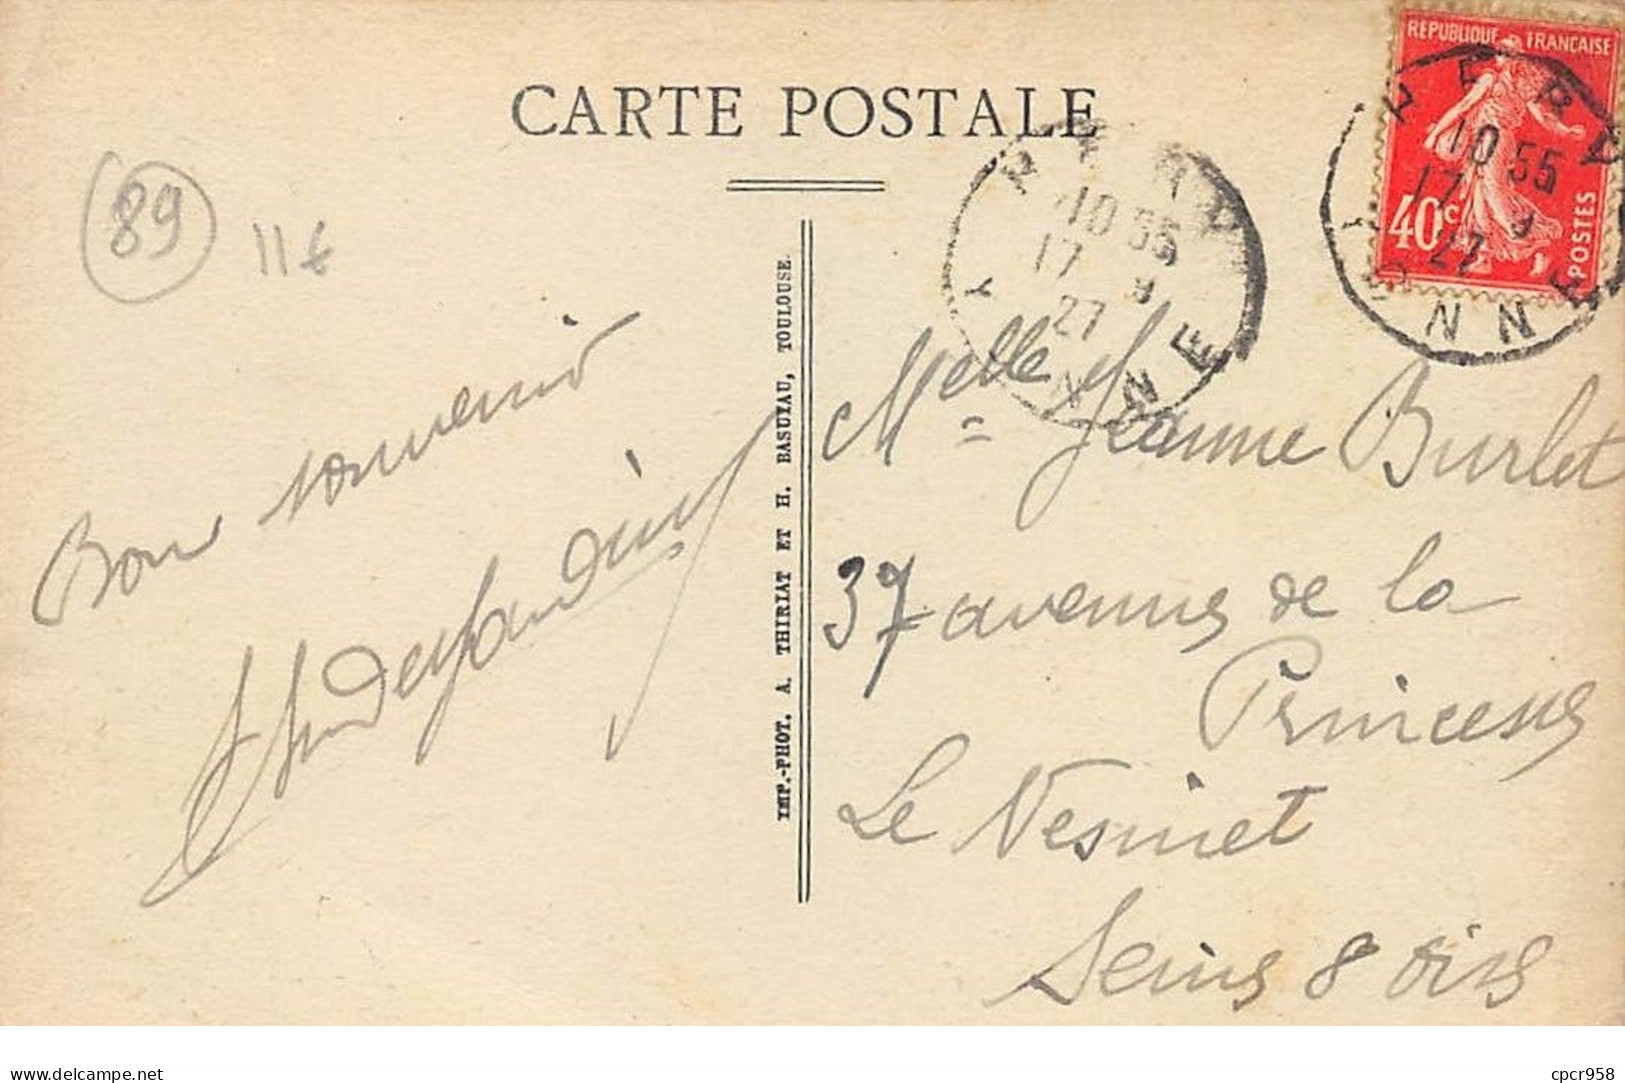 CARTE POSTALE
REPUBLIQUE FRANÇAISE
40c
POSTES
10 55
17 9
27
YONNE
10 55
17 9
27
NNE
89
11€
Bon souvenir
IMP.-PHOT. A. THIRIAT ET H. BASUYAU, TOULOUSE.
Melle Jeanne Burlet
37 avenue de la
Princesse
Le Vesinet
Seine & Oise
delcampe.net
cpcr958